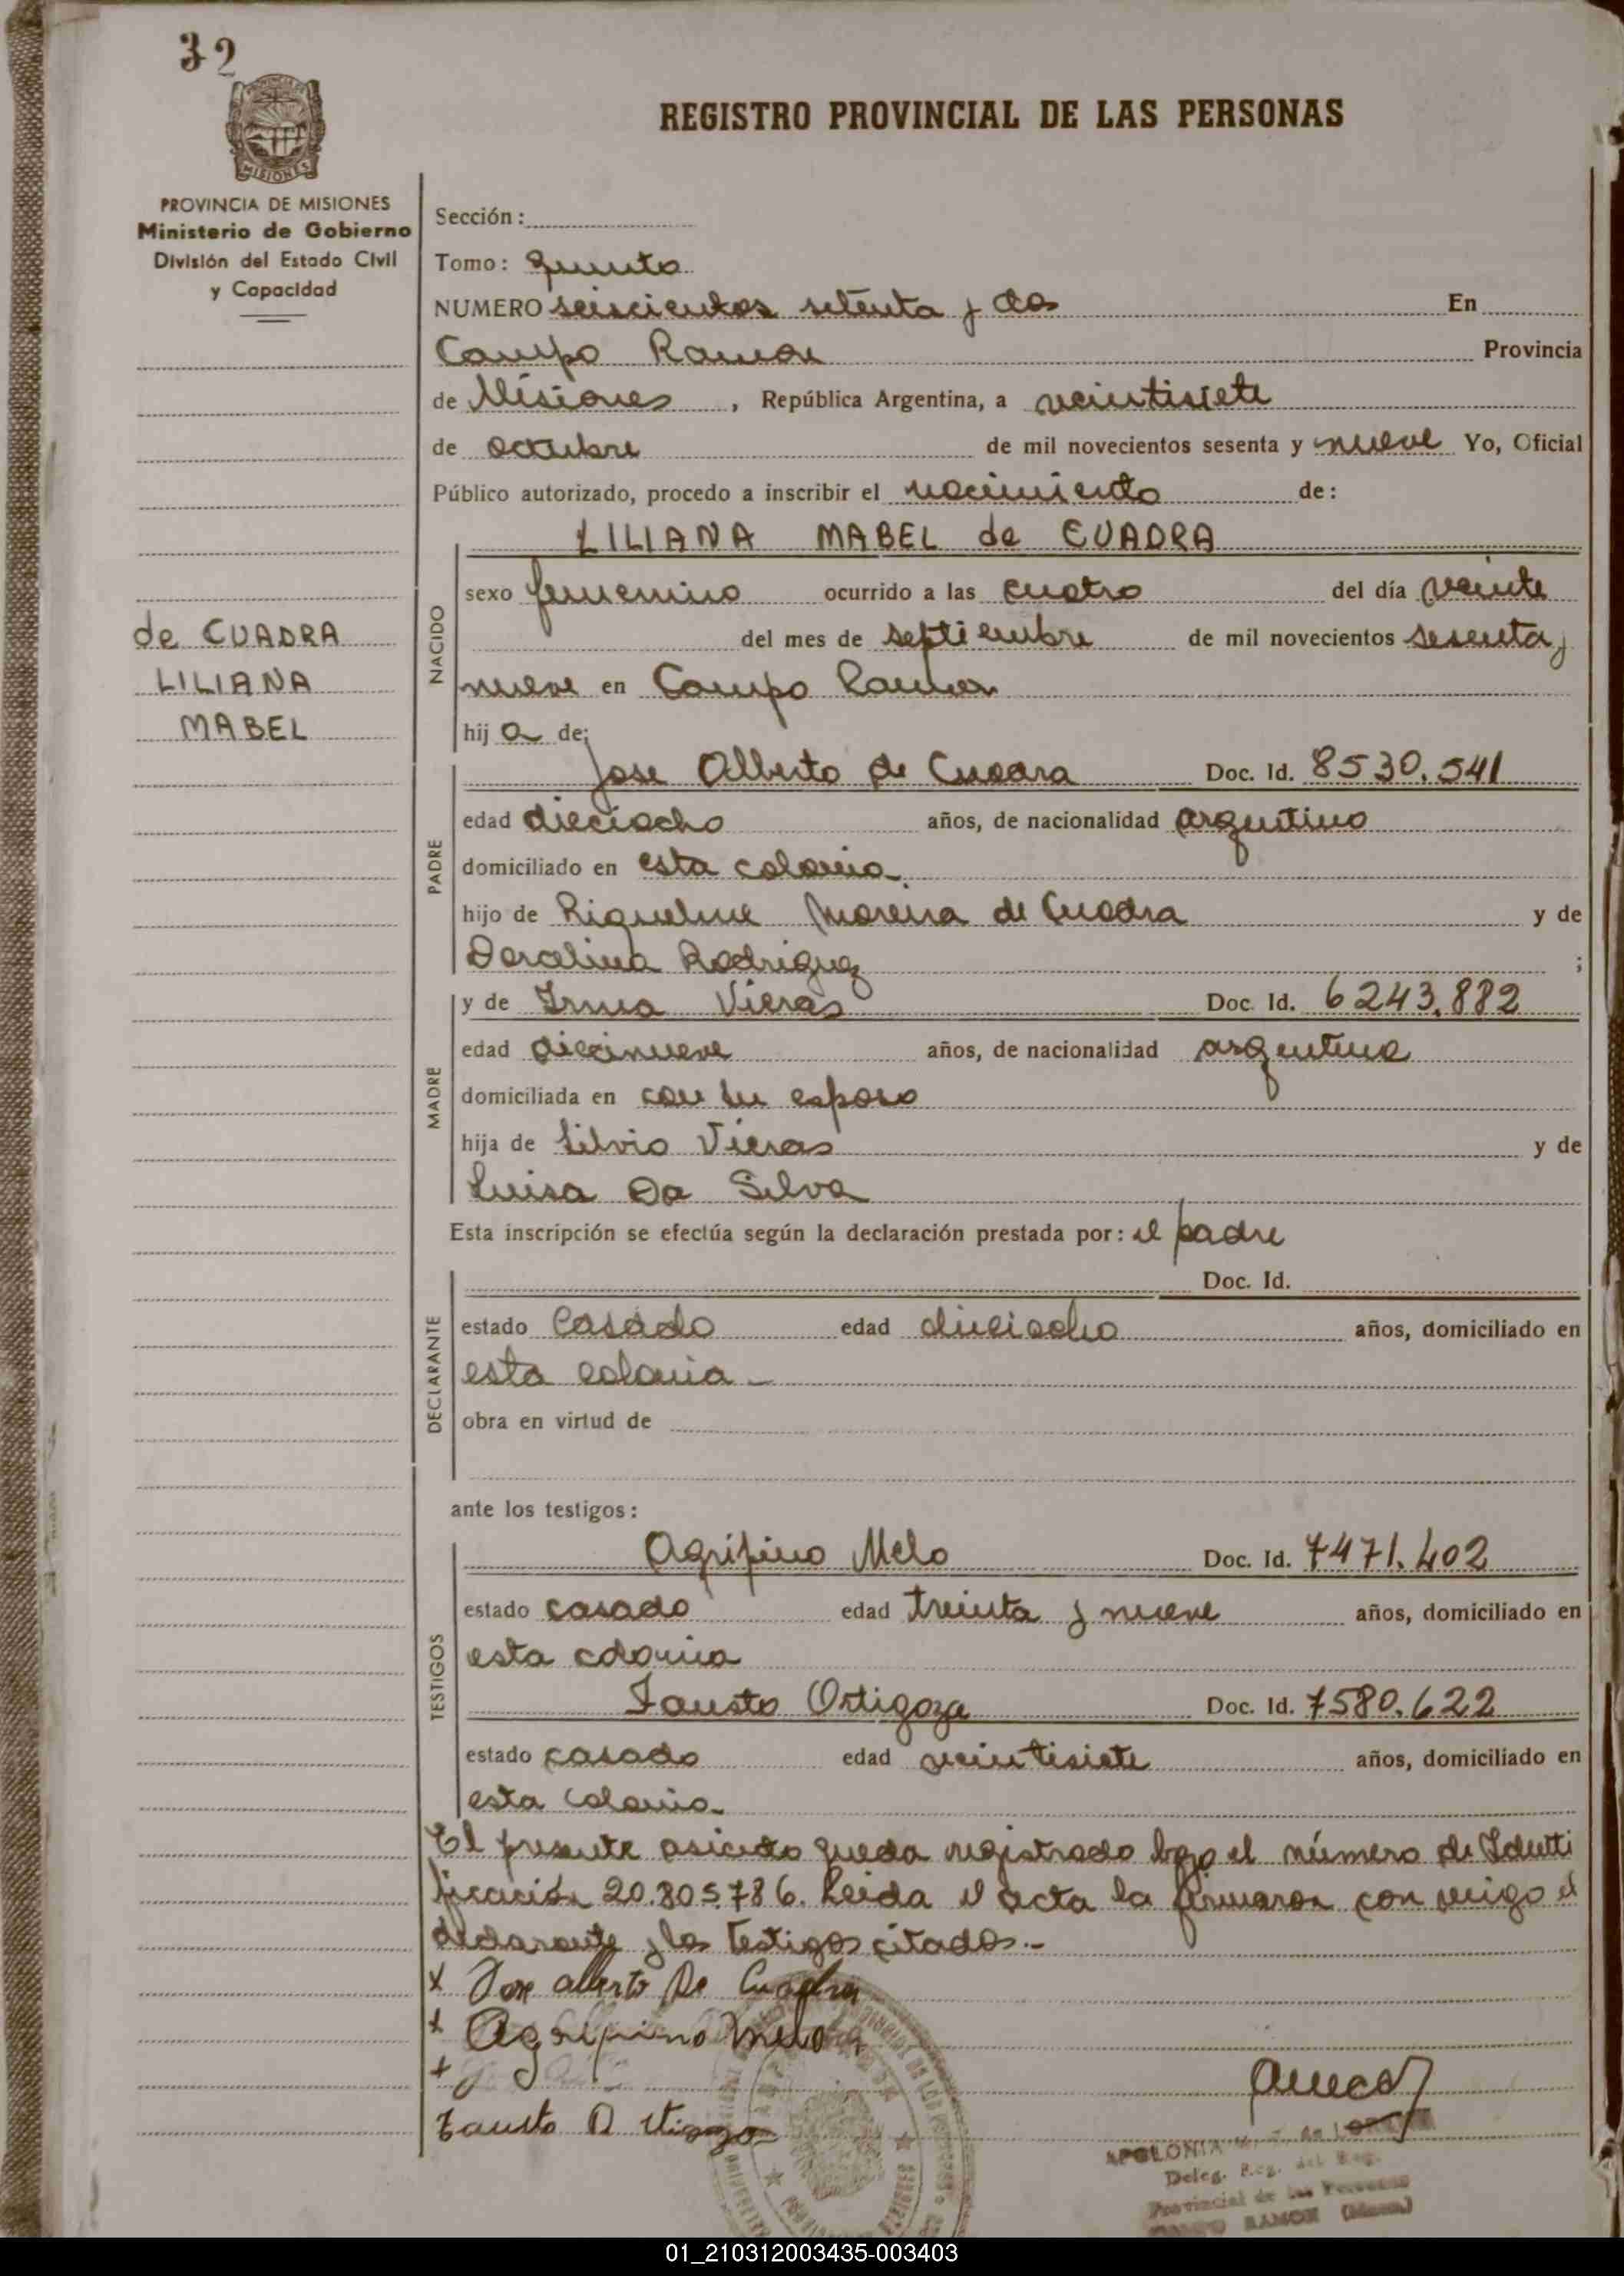 32
REGISTRO PROVINCIAL DE LAS PERSONAS
MISIONES
PROVINCIA DE MISIONES
Ministerio de Gobierno
División del Estado Civil
y Capacidad
Sección:
Tomo: Quinto
NUMERO seiscientos setenta y dos En
Campo Ramon Provincia
de Misiones, República Argentina, a veintisiete
de octubre de mil novecientos sesenta y nueve Yo, Oficial
Público autorizado, procedo a inscribir el nacimiento de:
LILIANA MABEL de CUADRA
de CUADRA
LILIANA
MABEL
NACIDO
sexo femenino ocurrido a las cuatro del día veinte
del mes de septiembre de mil novecientos sesenta y
nueve en Campo Ramon
hij a de:
PADRE
Jose Alberto de Cuadra Doc. Id. 8530.541
edad dieciocho años, de nacionalidad argentino
domiciliado en esta colonia.
hijo de Riquelme Moreira de Cuadra y de
Dorcelina Rodriguez ;
MADRE
y de Irma Vieras Doc. Id. 6243.882
edad diecinueve años, de nacionalidad argentina
domiciliada en con su esposo
hija de Silvio Vieras y de
Luisa Da Silva
Esta inscripción se efectúa según la declaración prestada por: el padre
DECLARANTE
Doc. Id.
estado casado edad dieciocho años, domiciliado en
esta colonia -
obra en virtud de
ante los testigos:
TESTIGOS
Agripino Melo Doc. Id. 7471.402
estado casado edad treinta y nueve años, domiciliado en
esta colonia
Fausto Ortigoza Doc. Id. 7580.622
estado casado edad veintisiete años, domiciliado en
esta colonia
El presente asiento queda registrado bajo el número de Identi
ficación 20.805.786. Leida el acta la firmaron con migo el
declarante y los testigos citados.-
x Jose alberto De Cuadra
x Agripino Melo
x
Fausto
APOLONIA
Deleg. Reg. del Reg.
Provincial de las Personas
CAMPO RAMON (Mnes.)
01_210312003435-003403